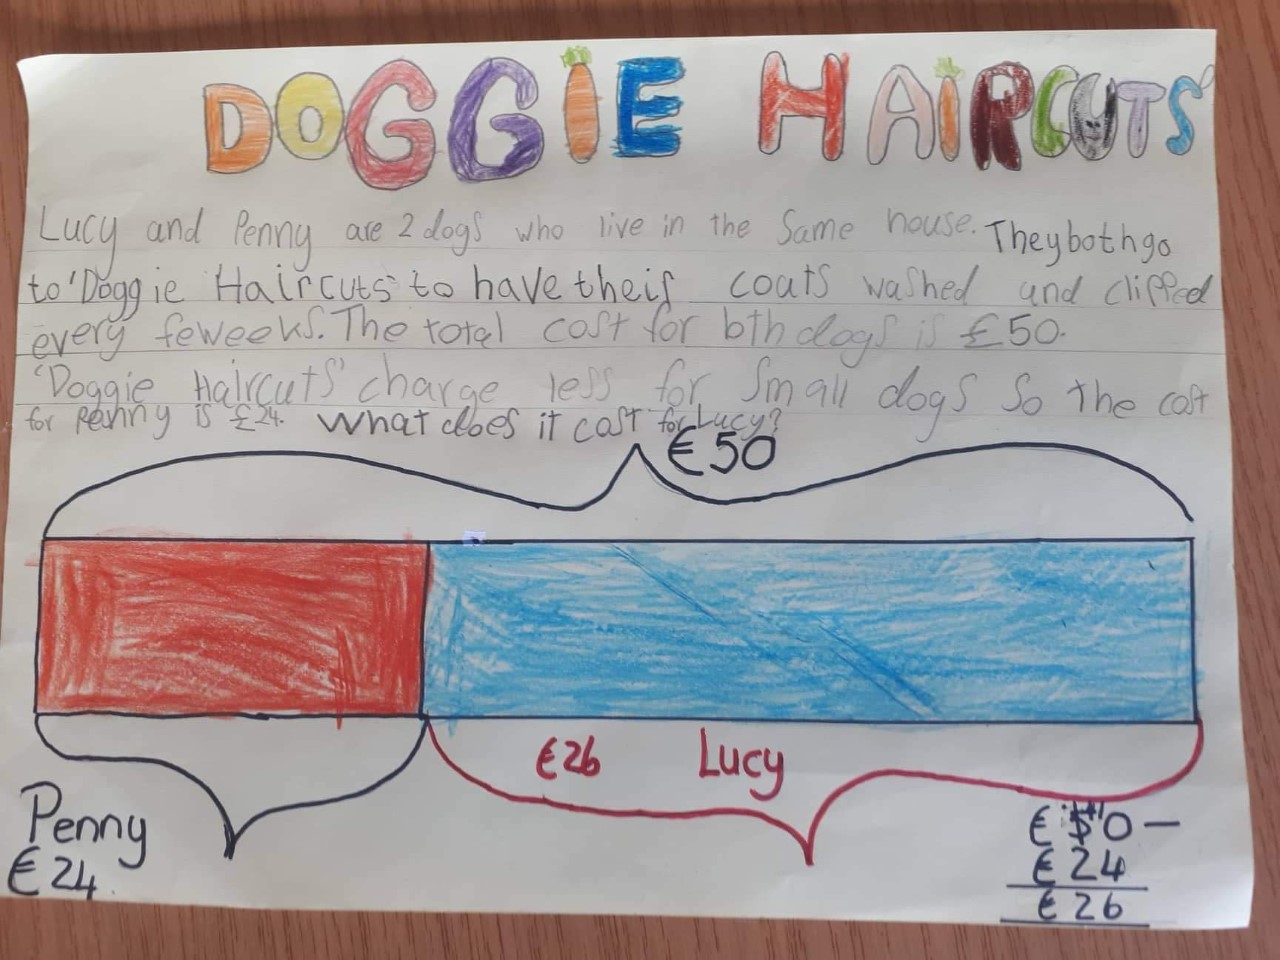 DOGGIE HAIRCUTS
Lucy and Penny are 2 dogs who live in the same house. They both go
to 'Doggie Haircuts' to have their coats washed and clipped
every feweeks. The total cost for bth dogs is €50.
'Doggie Haircuts' charge less for small dogs so the cost
for Penny is £24. What does it cost for Lucy?
€50
€26 Lucy
Penny
€24
€ 50 -
€ 24
€ 26